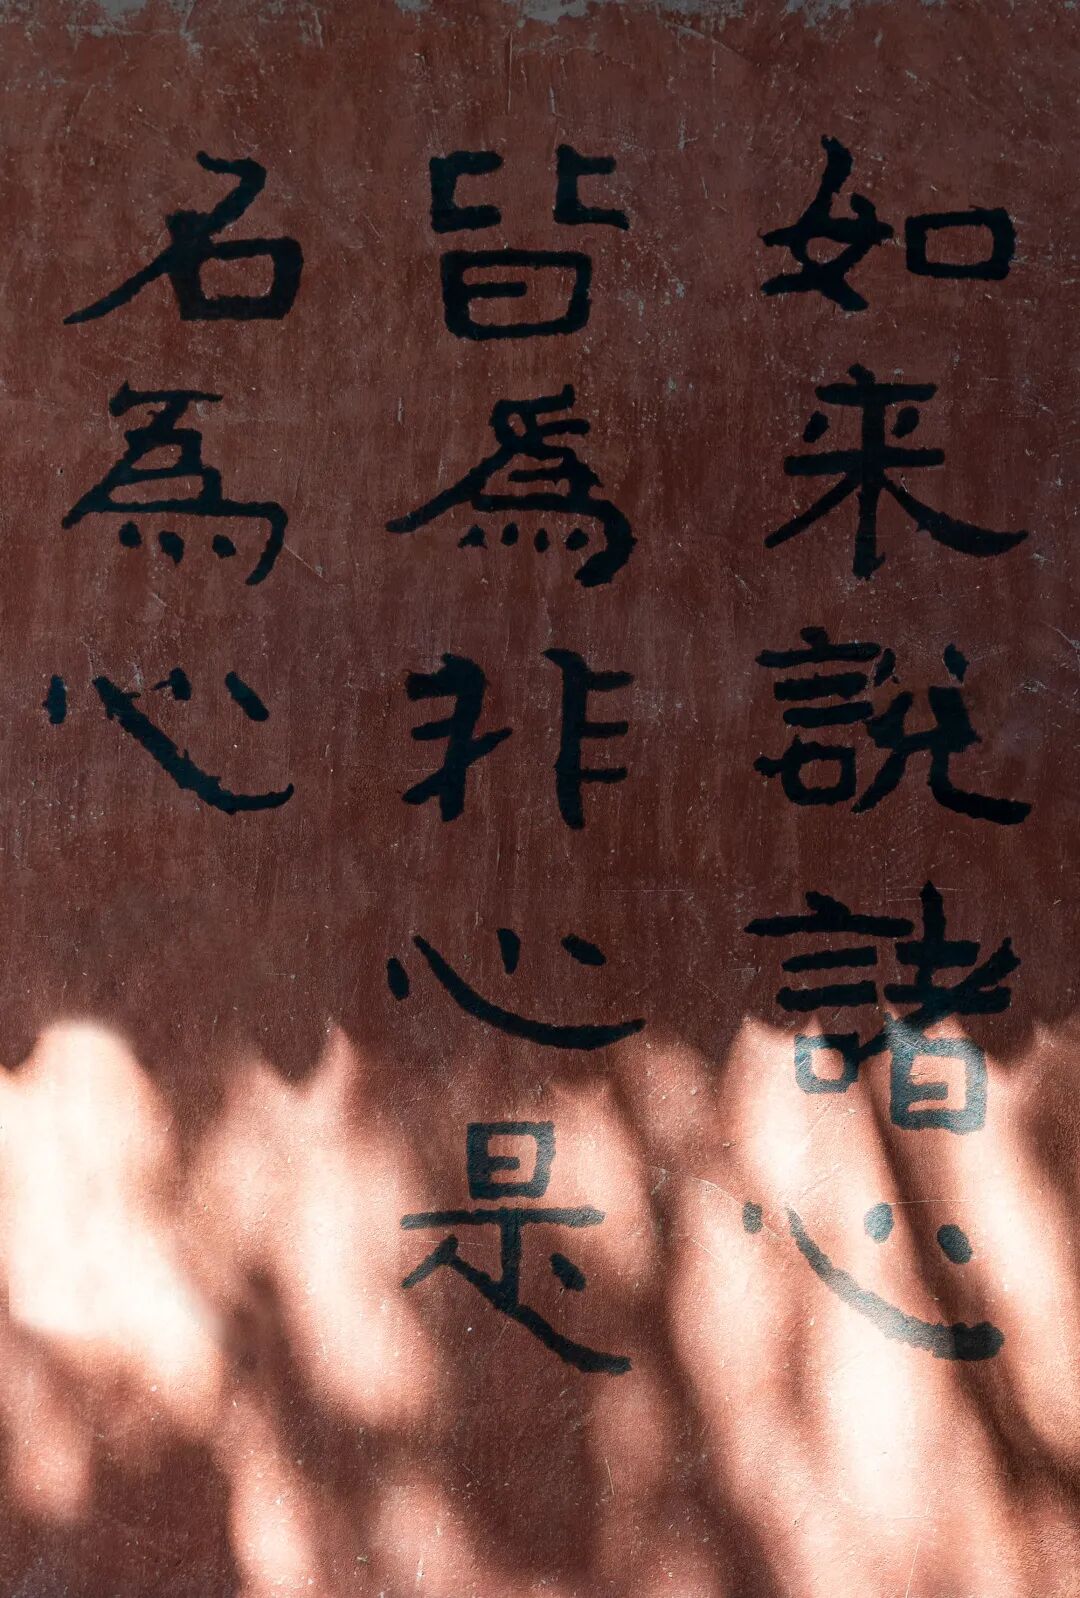 如来說諸心
皆為非心是
名為心